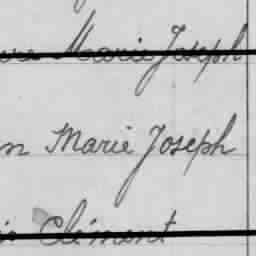 Marie Joseph
n Marie Joseph
Clément